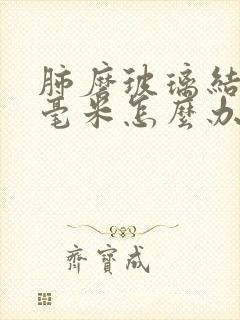 肺磨玻璃結
毫米怎麼办
齊寶成